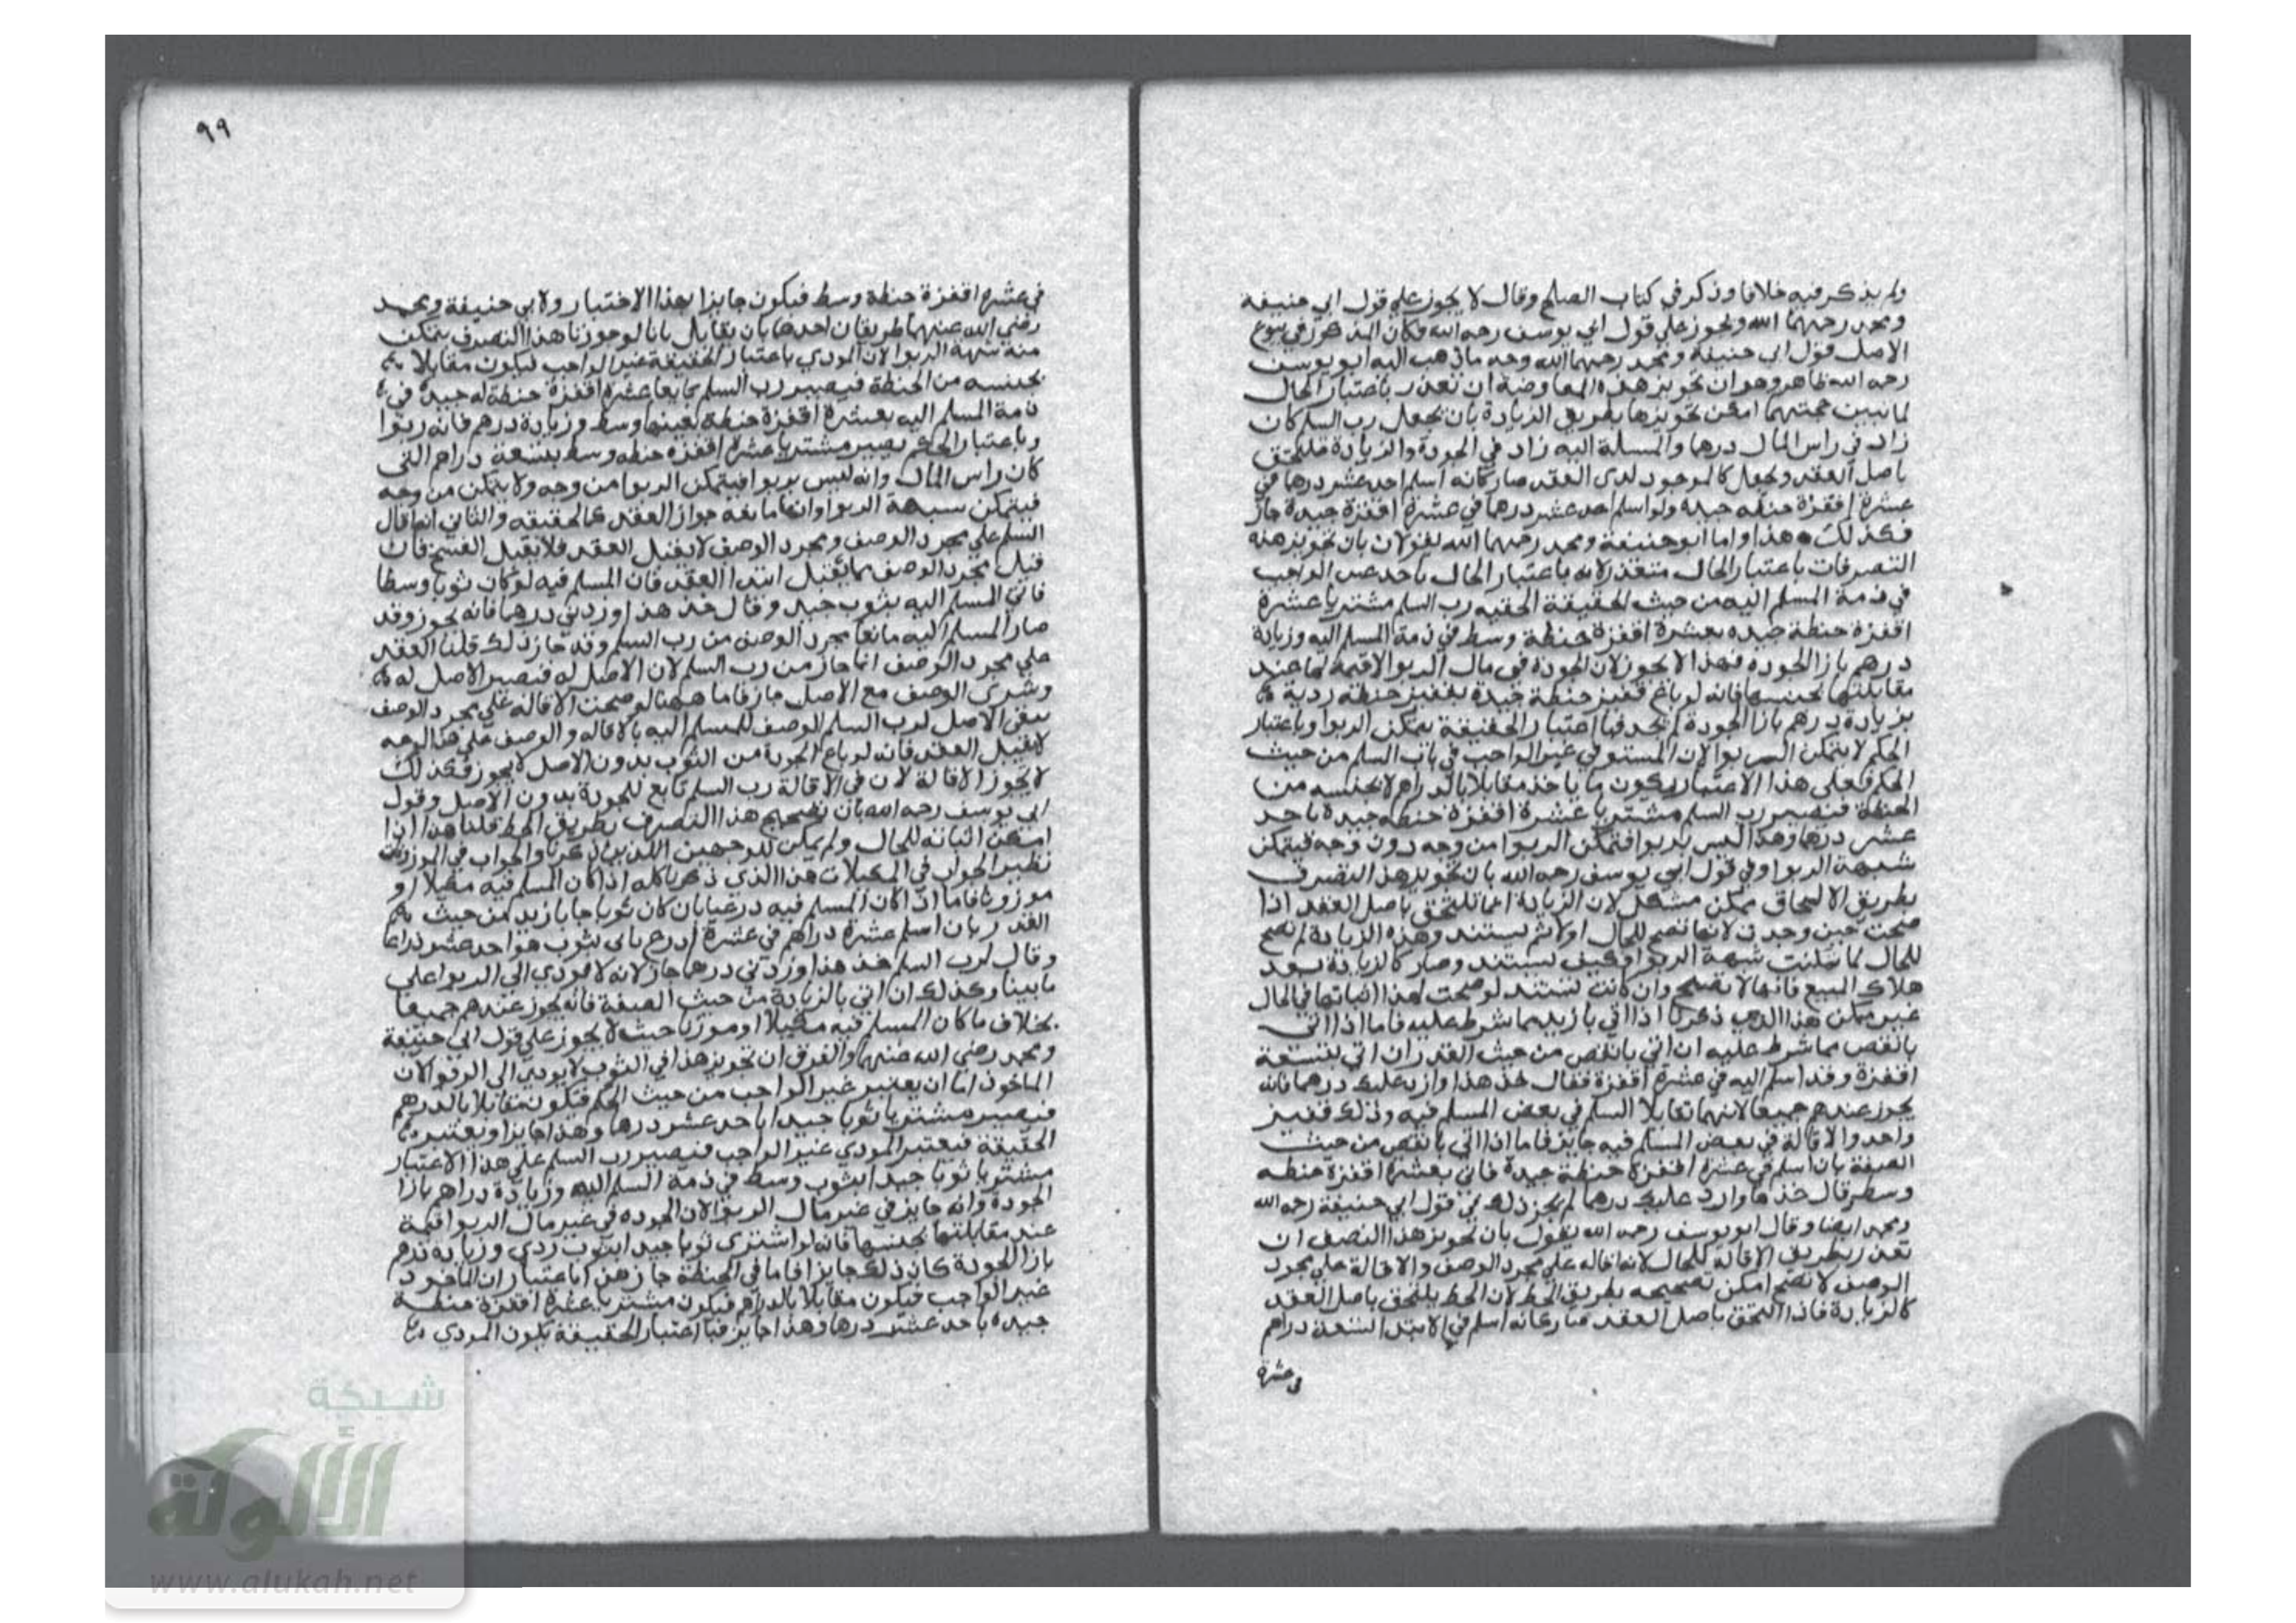 ولم يذكر فيه خلافا وذكر في كتاب الصلح وقال لا يجوز علي قول ابي حنيفة
ومحمد رحمهما الله ويجوز علي قول ابي يوسف رحمه الله فكان المذكور في بيوع
الاصل قول ابي حنيفة ومحمد رحمهما الله وجه ما ذهب اليه ابو يوسف
رحمه الله ظاهر وهو ان تجويز هذه المعاوضة ان تعذر باعتبار الحال
لما نبين حجتهما امكن تجويزها بطريق الزيادة بان يجعل رب السلم كان
زاد في راس المال درهما والمسلم اليه زاد في الجودة والزيادة تلتحق
باصل العقد ويجعل كالموجود لدي العقد صار كانه اسلم احد عشر درهما في
عشرة اقفزة حنطه جيده ولو اسلم احد عشر درهما في عشرة اقفزة جيدة جاز
فكذلك هذا واما ابو حنيفة ومحمد رحمهما الله يقولان بان تجويز هذه
التصرفات باعتبار الحال متعذر لانه باعتبار الحال ياخذ غير الواجب
في ذمة المسلم اليه من حيث الحقيقة رب السلم مشتريا عشرة
اقفزة حنطة جيده بعشرة اقفزة حنطة وسط في ذمة المسلم اليه وزيادة
درهم بازا الجوده فهذا لا يجوز لان الجودة في مال الربوا لا قيمة لها عند
مقابلتها بجنسها فانه لو باع قفيز حنطة جيدة بقفيز حنطة ردية
بزيادة درهم بازا الجودة لم يجز فباعتبار الحقيقة يتمكن الربوا وباعتبار
الحكم لا يتمكن الربوا لان المستوفي عين الواجب في باب السلم من حيث
الحكم فعلى هذا الاعتبار يكون ما ياخذ مقابلا بالدراهم لا بجنسه من
الحنطة فيصير رب السلم مشتريا عشرة اقفزة حنطه جيدة باحد
عشر درهما وهذا ليس بربوا فتمكن الربوا من وجه دون وجه فيتمكن
شبهة الربوا وفي قول ابي يوسف رحمه الله بان تجويز هذا التصرف
بطريق الالحاق ممكن مشكل لان الزيادة انما تلتحق باصل العقد اذا
صحت حين وجدت لانها تصح للحال اولا ثم يستند وهذه الزيادة لم تصح
للحال لما تمكنت شبهة الربوا فكيف يستند وصار كالزيادة بعد
هلاك المبيع فانها لا تصح وان كانت تستند لو صحت لهذا اثباتها في الحال
غير ممكن هذا الذي ذكرنا اذا اتي بازيد مما شرط عليه فاما اذا اتى
بانقص مما شرط عليه ان اتي بانقص من حيث القدر ان اتي بتسعة
اقفزة وقد اسلم اليه في عشرة اقفزة فقال خذ هذا وازيد عليك درهما فانه
يجوز عندهم جميعا لانهما تقابلا السلم في بعض المسلم فيه وذلك قفيز
واحد والاقالة في بعض المسلم فيه جايز فاما اذا اتي بانقص من حيث
الصفة بان اسلم في عشرة اقفزة حنطة جيدة فاتى بعشرة اقفزة حنطه
وسط وقال خذها وارد عليك درهما لم يجز ذلك في قول ابي حنيفة رحمه الله
ومحمد ايضا وقال ابو يوسف رحمه الله يقول بان تجويز هذا التصرف ان
تعذر بطريق الاقالة للحال لانه اقاله علي مجرد الوصف والاقالة علي مجرد
الوصف لا تصح امكن تصحيحه بطريق الحط لان الحط يلتحق باصل العقد
كالزيادة فاذا التحق باصل العقد صار كانه اسلم في الابتدا لتسعة دراهم
في عشرة
٩٩
في عشره اقفزة حنطة وسط فيكون جايزا بهذا الاختبار ولابي حنيفة ومحمد
رضي الله عنهما طريقان احدهما بان يقابل بانا لو جوزنا هذا التصرف يتمكن
منه شبهة الربوا لان المودي باعتبار الحقيقة غير الواجب فيكون مقابلا
بجنسه من الحنطة فيصير رب السلم بايعا عشرة اقفزة حنطة له جيدة في
ذمة المسلم اليه بعشرة اقفزة حنطة بعينها وسط وزيادة درهم فانه ربوا
وباعتبار الحكم يصير مشتريا عشرة اقفزه حنطه وسط بتسعة دراهم التي
كان راس المال وانه ليس بربوا فيتمكن الربوا من وجه ولا يتمكن من وجه
فيتمكن شبهة الربوا وانها مانعه جواز العقد كالحقيقه والثاني انها اقال
السلم علي مجرد الوصف ومجرد الوصف لا يقبل العقد فلا يقبل الفسخ فان
قيل مجرد الوصف مما يقبل ابتدا العقد فان المسلم فيه لو كان ثوبا وسطا
فاتي المسلم اليه بثوب جيد وقال خذ هذا وزدني درهما فانه يجوز وقد
صار المسلم اليه بايعا مجرد الوصف من رب السلم وقد جاز ذلك قلنا العقد
علي مجرد الوصف انما جاز من رب السلم لان الاصل له فيصير الاصل له
وشرى الوصف مع الاصل جاز فاما ههنا لو صحت الاقاله علي مجرد الوصف
يبقى الاصل لرب السلم الوصف للمسلم اليه بالاقاله والوصف علي هذا الوجه
لا يقبل العقد فانه لو باع الجودة من الثوب بدون الاصل لا يجوز فكذلك
لا يجوز الاقالة لان في الاقالة رب السلم بايع للجودة بدون الاصل وقول
ابي يوسف رحمه الله بان تصحيح هذا التصرف بطريق الحط قلنا هذا اذا
امكن اثباته للحال ولم يمكن للوجهين اللذين ذكرنا والجواب في الموزونات
نظير الجواب في المكيلات هذا الذي ذكرنا كله اذا كان المسلم فيه مكيلا او
موزونا فاما اذا كان المسلم فيه ذرعيا بان كان ثوبا جا بازيد من حيث
القدر بان اسلم عشرة دراهم في عشرة اذرع باتى بثوب هو احد عشر ذراعا
وقال لرب السلم خذ هذا وزدني درهما جاز لانه لا يودي الي الربوا على
ما بينا وكذلك ان اتي بالزيادة من حيث الصفة فانه يجوز عندهم جميعا
بخلاف ما كان المسلم فيه مكيلا او موزونا حيث لا يجوز علي قول ابي حنيفة
ومحمد رضي الله عنهما والفرق ان تجويز هذا في الثوب لا يودي الي الربوا لان
الماخوذ اما ان يعتبر غير الواجب من حيث الحكم فيكون مقابلا بالدرهم
فيصير مشتريا ثوبا جيدا باحد عشر درهما وهذا جايز او يعتبر
الحقيقة فيعتبر المودي غير الواجب فيصير رب السلم علي هذا الاعتبار
مشتريا ثوبا جيدا بثوب وسط في ذمة المسلم اليه وزيادة دراهم بازا
الجوده وانه جايز في غير مال الربوا لان الجوده في غير مال الربوا قيمة
عند مقابلتها بجنسها فانه لو اشترى ثوبا جيدا بثوب ردي وزيادة درهم
بازا الجودة كان ذلك جايزا فاما في الحنطة جاز هذا باعتبار ان الماخوذ
غير الواجب فيكون مقابلا بالدراهم فيكون مشتريا عشرة اقفزة حنطة
جيده باحد عشر درهما وهذا جايز فباعتبار الحقيقة يكون المودي
شبكة
الألوكة
www.alukah.net